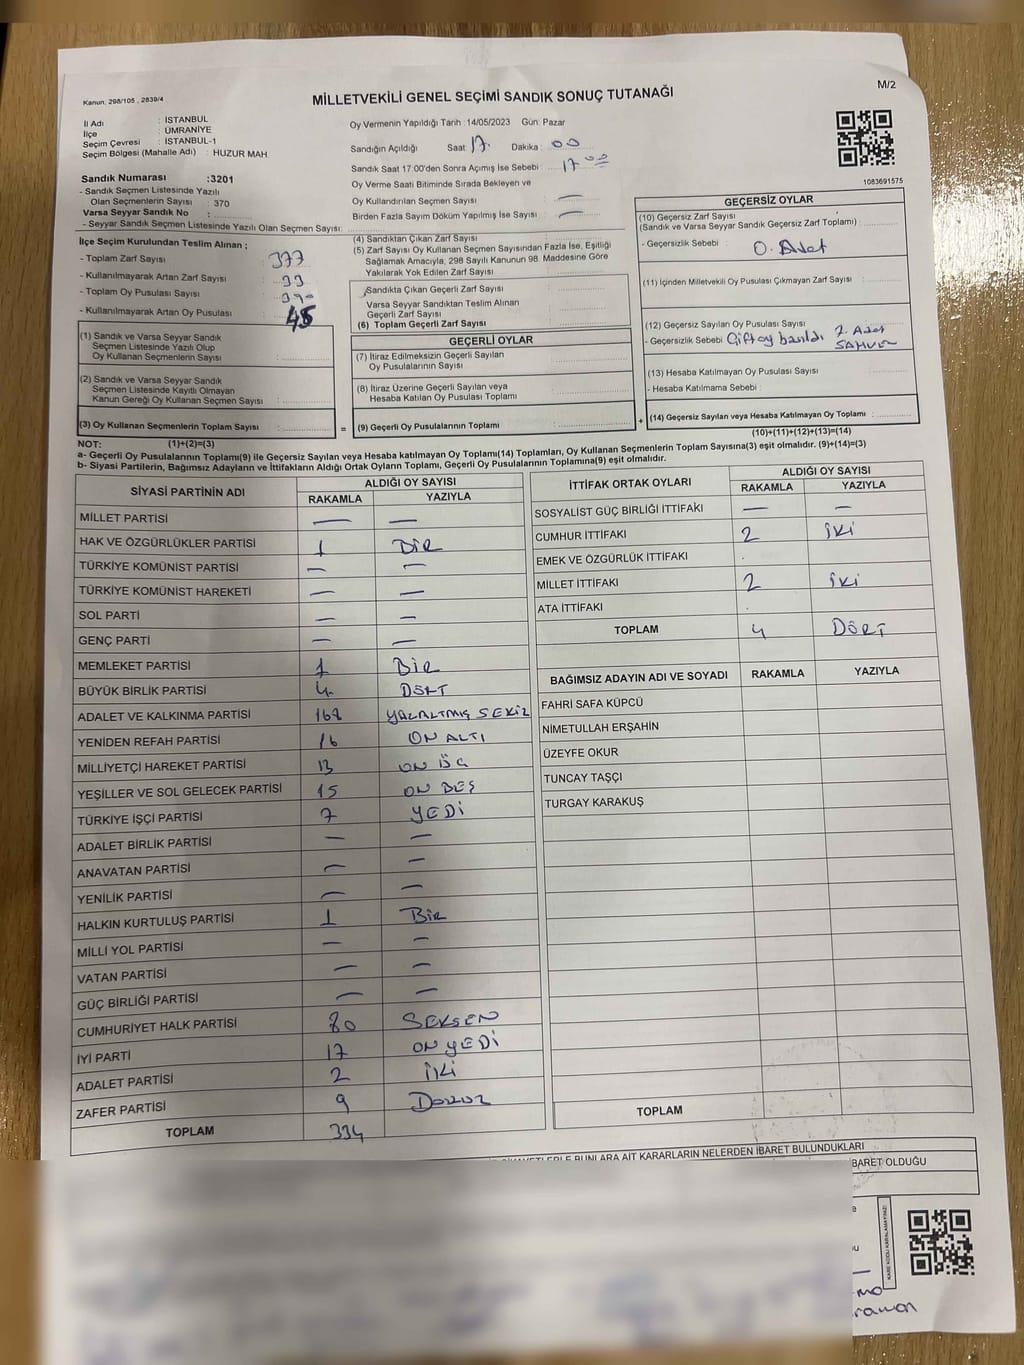 Kanun: 298/105 , 2839/4
M/2
MİLLETVEKİLİ GENEL SEÇİMİ SANDIK SONUÇ TUTANAĞI
İl Adı : İSTANBUL
İlçe : ÜMRANİYE
Seçim Çevresi : İSTANBUL-1
Seçim Bölgesi (Mahalle Adı) : HUZUR MAH
Oy Vermenin Yapıldığı Tarih :14/05/2023 Gün: Pazar
Sandığın Açıldığı Saat 17. Dakika : 00
Sandık Saat 17:00'den Sonra Açımış İse Sebebi : 17 00
Oy Verme Saati Bitiminde Sırada Bekleyen ve
Oy Kullandırılan Seçmen Sayısı : —
Birden Fazla Sayım Döküm Yapılmış İse Sayısı : —
1083691575
Sandık Numarası :3201
- Sandık Seçmen Listesinde Yazılı
Olan Seçmenlerin Sayısı : 370
Varsa Seyyar Sandık No :
- Seyyar Sandık Seçmen Listesinde Yazılı Olan Seçmen Sayısı:
İlçe Seçim Kurulundan Teslim Alınan ;
- Toplam Zarf Sayısı : 377
- Kullanılmayarak Artan Zarf Sayısı : 33
- Toplam Oy Pusulası Sayısı :
- Kullanılmayarak Artan Oy Pusulası : 45
(1) Sandık ve Varsa Seyyar Sandık
Seçmen Listesinde Yazılı Olup
Oy Kullanan Seçmenlerin Sayısı :
(2) Sandık ve Varsa Seyyar Sandık
Seçmen Listesinde Kayıtlı Olmayan
Kanun Gereği Oy Kullanan Seçmen Sayısı :
(3) Oy Kullanan Seçmenlerin Toplam Sayısı :
(4) Sandıktan Çıkan Zarf Sayısı :
(5) Zarf Sayısı Oy Kullanan Seçmen Sayısından Fazla İse, Eşitliği
Sağlamak Amacıyla, 298 Sayılı Kanunun 98. Maddesine Göre
Yakılarak Yok Edilen Zarf Sayısı :
Sandıkta Çıkan Geçerli Zarf Sayısı :
Varsa Seyyar Sandıktan Teslim Alınan
Geçerli Zarf Sayısı :
(6) Toplam Geçerli Zarf Sayısı :
GEÇERLİ OYLAR
(7) İtiraz Edilmeksizin Geçerli Sayılan
Oy Pusulalarının Sayısı :
(8) İtiraz Üzerine Geçerli Sayılan veya
Hesaba Katılan Oy Pusulası Toplamı :
= (9) Geçerli Oy Pusulalarının Toplamı :
GEÇERSİZ OYLAR
(10) Geçersiz Zarf Sayısı
(Sandık ve Varsa Seyyar Sandık Geçersiz Zarf Toplamı) :
- Geçersizlik Sebebi : 0. Adet
(11) İçinden Milletvekili Oy Pusulası Çıkmayan Zarf Sayısı :
(12) Geçersiz Sayılan Oy Pusulası Sayısı : 7. Adet
- Geçersizlik Sebebi : Çift oy basıldı
(13) Hesaba Katılmayan Oy Pusulası Sayısı :
- Hesaba Katılmama Sebebi :
+ (14) Geçersiz Sayılan veya Hesaba Katılmayan Oy Toplamı :
NOT: (1)+(2)=(3)
(10)+(11)+(12)+(13)=(14)
a- Geçerli Oy Pusulalarının Toplamı(9) ile Geçersiz Sayılan veya Hesaba katılmayan Oy Toplamı(14) Toplamları, Oy Kullanan Seçmenlerin Toplam Sayısına(3) eşit olmalıdır. (9)+(14)=(3)
b- Siyasi Partilerin, Bağımsız Adayların ve İttifakların Aldığı Ortak Oyların Toplamı, Geçerli Oy Pusulalarının Toplamına(9) eşit olmalıdır.
SİYASİ PARTİNİN ADI ALDIĞI OY SAYISI
RAKAMLA YAZIYLA
MİLLET PARTİSİ — —
HAK VE ÖZGÜRLÜKLER PARTİSİ 1 BİR
TÜRKİYE KOMÜNİST PARTİSİ — —
TÜRKİYE KOMÜNİST HAREKETİ — —
SOL PARTİ — —
GENÇ PARTİ — —
MEMLEKET PARTİSİ 1 BİR
BÜYÜK BİRLİK PARTİSİ 4 DÖRT
ADALET VE KALKINMA PARTİSİ 168 YÜZALTMIŞ SEKİZ
YENİDEN REFAH PARTİSİ 16 ON ALTI
MİLLİYETÇİ HAREKET PARTİSİ 13 ON ÜÇ
YEŞİLLER VE SOL GELECEK PARTİSİ 15 ON BEŞ
TÜRKİYE İŞÇİ PARTİSİ 7 YEDİ
ADALET BİRLİK PARTİSİ — —
ANAVATAN PARTİSİ — —
YENİLİK PARTİSİ — —
HALKIN KURTULUŞ PARTİSİ 1 BİR
MİLLİ YOL PARTİSİ — —
VATAN PARTİSİ — —
GÜÇ BİRLİĞİ PARTİSİ — —
CUMHURİYET HALK PARTİSİ 80 SEKSEN
İYİ PARTİ 17 ON YEDİ
ADALET PARTİSİ 2 İKİ
ZAFER PARTİSİ 9 DOKUZ
TOPLAM 334
İTTİFAK ORTAK OYLARI ALDIĞI OY SAYISI
RAKAMLA YAZIYLA
SOSYALİST GÜÇ BİRLİĞİ İTTİFAKI — —
CUMHUR İTTİFAKI 2 İKİ
EMEK VE ÖZGÜRLÜK İTTİFAKI
MİLLET İTTİFAKI 2 İKİ
ATA İTTİFAKI
TOPLAM 4 DÖRT
BAĞIMSIZ ADAYIN ADI VE SOYADI RAKAMLA YAZIYLA
FAHRİ SAFA KÜPCÜ
NİMETULLAH ERŞAHİN
ÜZEYFE OKUR
TUNCAY TAŞÇI
TURGAY KARAKUŞ
TOPLAM
BUNLARA AİT KARARLARIN NELERDEN İBARET BULUNDUKLARI
İBARET OLDUĞU
KARE KODU KARALAMAYINIZ!